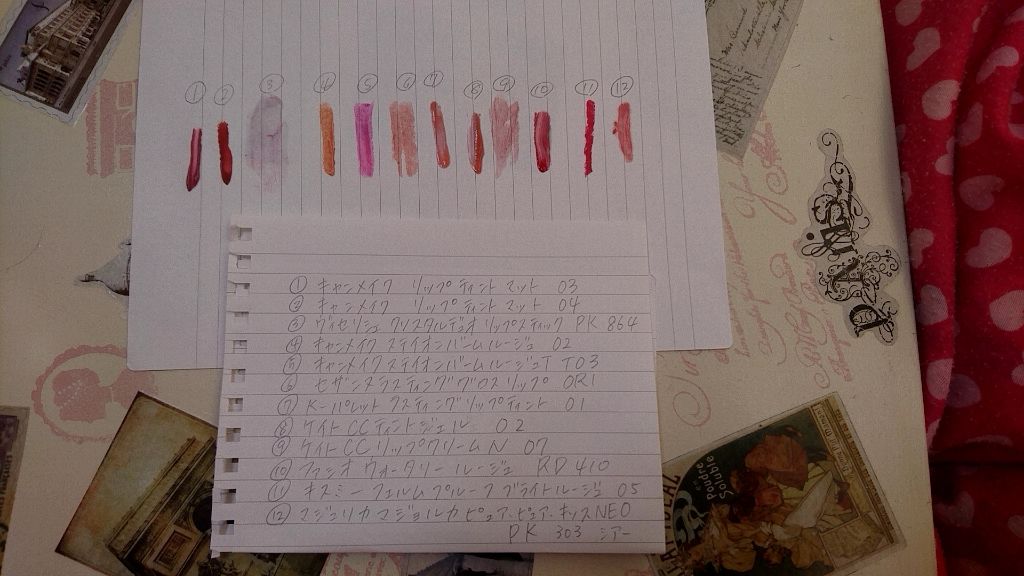 ① ② ③ ④ ⑤ ⑥ ⑦ ⑧ ⑨ ⑩ ⑪ ⑫
① キャンメイク リップティント マット 03
② キャンメイク リップティント マット 04
③ ヴィセリシェ クリスタルデュオ リップスティック PK 864
④ キャンメイク ステイオンバームルージュ 02
⑤ キャンメイク ステイオンバームルージュT T03
⑥ セザンヌ ラスティンググロスリップ OR1
⑦ K-パレット ラスティングリップティント 01
⑧ ケイト CCティントジェル 02
⑨ ケイト CC リップクリームN 07
⑩ ファシオ ウォータリー ルージュ RD 410
⑪ キスミー フェルム プルーフ ブライトルージュ 05
⑫ マジョリカ マジョルカ ピュア・ピュア・キッスNEO
PK 303 シアー
PARIS
Poudre
Soluble